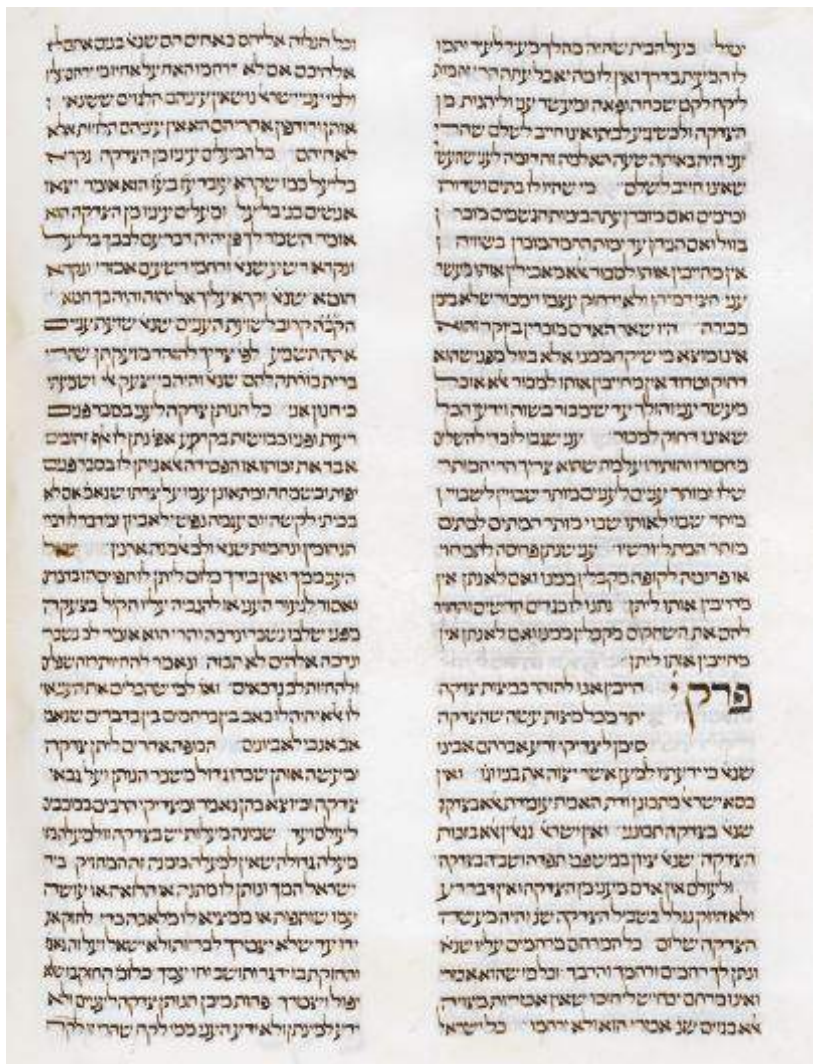 יטול בעל הבית שהיה מהלך מעיר לעיר ותמו
לו המעות בדרך ואין לו מה יאכל עתה הרי זה מותר
ליקח לקט שכחה ופאה ומעשר עני וליהנות מן
הצדקה ולכשיגיע לביתו אינו חייב לשלם שהרי
עני היה באותה שעה הא למה זה דומה לעני שהעשיר
שאינו חייב לשלם מי שהיו לו בתים ושדות
וכרמים ואם מוכרן עתה בימות הגשמים מוכרן
בזול ואם הניחן עד ימות החמה מוכרן בשוויהן
אין מחייבין אותו למכור אלא מאכילין אותו מעשר
עני חצי דמיהן ולא ידחוק עצמו וימכור שלא בזמן
מכירה היו שאר האדם מוכרין ביוקר והוא
אינו מוצא מי שיקח ממנו אלא בזול מפני שהוא
דחוק וטרוד אין מחייבין אותו למכור אלא אוכל
מעשר עני והולך עד שימכור בשוה וידע הכל
שאינו דחוק למכור עני שגבו לו כדי להשלים
מחסורו והותירו על מה שהוא צריך הרי המותר
שלו ומותר עניים לעניים מותר שבויין לשבויין
מותר שבוי לאותו שבוי מותר המתים למתים
מותר המת ליורשיו עני שנתן פרוסה לתמחוי
או פרוטה לקופה מקבלין ממנו ואם לא נתן אין
מחייבין אותו ליתן נתנו לו בגדים חדשים והחזיר
להם את השחקים מקבלין ממנו ואם לא נתן אין
מחייבין אותו ליתן
פרק י' חייבין אנו להזהר במצות צדקה
יתר מכל מצות עשה שהצדקה
סימן לצדיקי זרע אברהם אבינו
שנא' כי ידעתיו למען אשר יצוה את בניו וגו' ואין
כסא ישראל מתכונן ודת האמת עומדת אלא בצדקה
שנא' בצדקה תכונני ואין ישראל נגאלין אלא בזכות
הצדקה שנא' ציון במשפט תפדה ושביה בצדקה
ולעולם אין אדם מעני מן הצדקה ואין דבר רע
ולא היזק נגלל בשביל הצדקה שנ' והיה מעשה
הצדקה שלום כל המרחם מרחמים עליו שנא'
ונתן לך רחמים ורחמך והרבך וכל מי שהוא אכזרי
ואינו מרחם יש לחוש ליחוסו שאין אכזריות מצויה
אלא בגוים שנ' אכזרי הוא ולא ירחמו כל ישראל
וכל הנלוה אליהם כאחים הם שנא' בנים אתם ליי
אלהיכם אם לא ירחם האח על אחיו מי ירחם עליו
ולמי עניי ישראל נושאין עיניהם הלגוים ששונאין
אותן ורודפין אחריהם הא אין עיניהם תלויות אלא
לאחיהם כל המעלים עיניו מן הצדקה נקרא
בליעל כמו שקרא עובד ע"ז בע"ז הוא אומר יצאו
אנשים בני בליעל ומעלים עיניו מן הצדקה הוא
אומר השמר לך פן יהיה דבר עם לבבך בליעל
ונקרא רשע שנא' ורחמי רשעים אכזרי ונקרא
חוטא שנא' וקרא עליך אל יהוה והיה בך חטא
הקב"ה קרוב לשועת העניים שנא' שועת עניים
אתה תשמע לפיכך צריך להזהר מזעקתן שהרי
ברית כרותה להם שנא' והיה כי יצעק אלי ושמעתי
כי חנון אני כל הנותן צדקה לעני בסבר פנים
רעות ופניו כבושות בקרקע אפי' נתן לו אלף זהובים
אבד את זכותו והפסידה אלא נותן לו בסבר פנים
יפות ובשמחה ומתאונן עמו על צרתו שנא' אם לא
בכיתי לקשה יום עגמה נפשי לאביון ומדבר לו דברי
תנחומין ונחמות שנא' ולב אלמנה ארנין שאל
העני ממך ואין בידך כלום ליתן לו תפייסהו בדברים
ואסור לגעור בעני או להגביה עליו הקול בצעקה
מפני שלבו נשבר ונדכה והרי הוא אומר לב נשבר
ונדכה אלהים לא תבזה ונאמר להחיות רוח שפלים
ולהחיות לב נדכאים ואוי למי שהכלים את העני אוי
לו אלא יהיה לו כאב בין ברחמים בין בדברים שנאמ'
אב אנכי לאביונים הכופה אחרים ליתן צדקה
ומעשה אותן שכרו גדול משכר הנותן ועל גבאי
צדקה וכיוצא בהן נאמר ומצדיקי הרבים ככוכבים
לעולם ועד שמונה מעלות יש בצדקה זו למעלה מזו
מעלה גדולה שאין למעלה ממנה זה המחזיק ביד
ישראל המך ונותן לו מתנה או הלואה או עושה
עמו שותפות או ממציא לו מלאכה כדי לחזק את
ידו עד שלא יצטרך לבריות ולא ישאל ועל זה נאמ'
והחזקת בו גר ותושב וחי עמך כלומר החזק בו שלא
יפול ויצטרך פחות מיכן הנותן צדקה לעניים ולא
ידע למי נתן ולא ידע העני ממי לקח שהרי זו